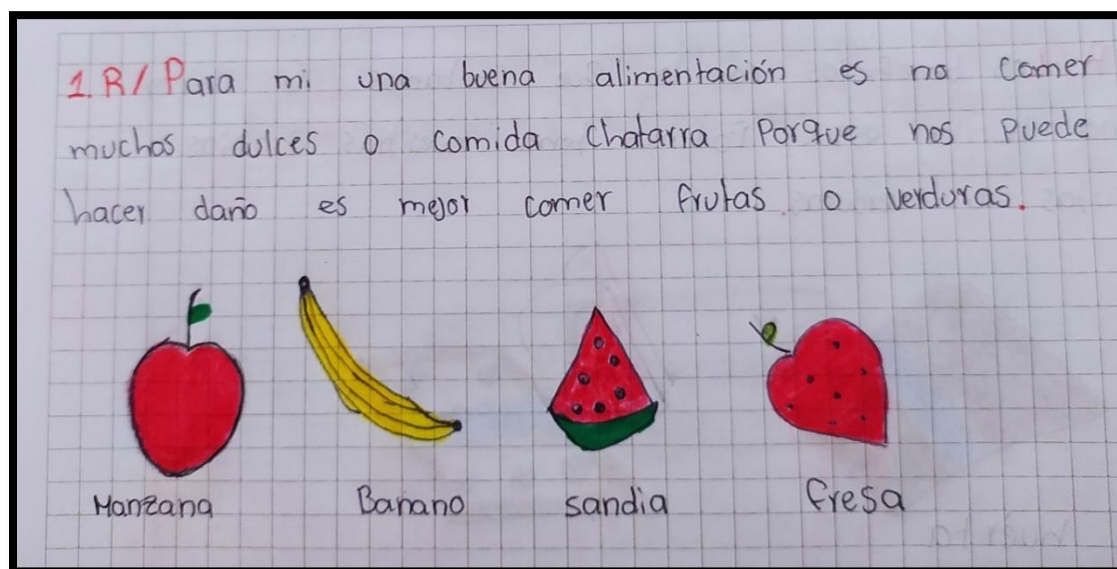 1. R/ Para mi una buena alimentación es no comer
muchos dulces o comida chatarra Porque nos Puede
hacer daño es mejor comer frutas o verduras.
Manzana Banano sandia fresa